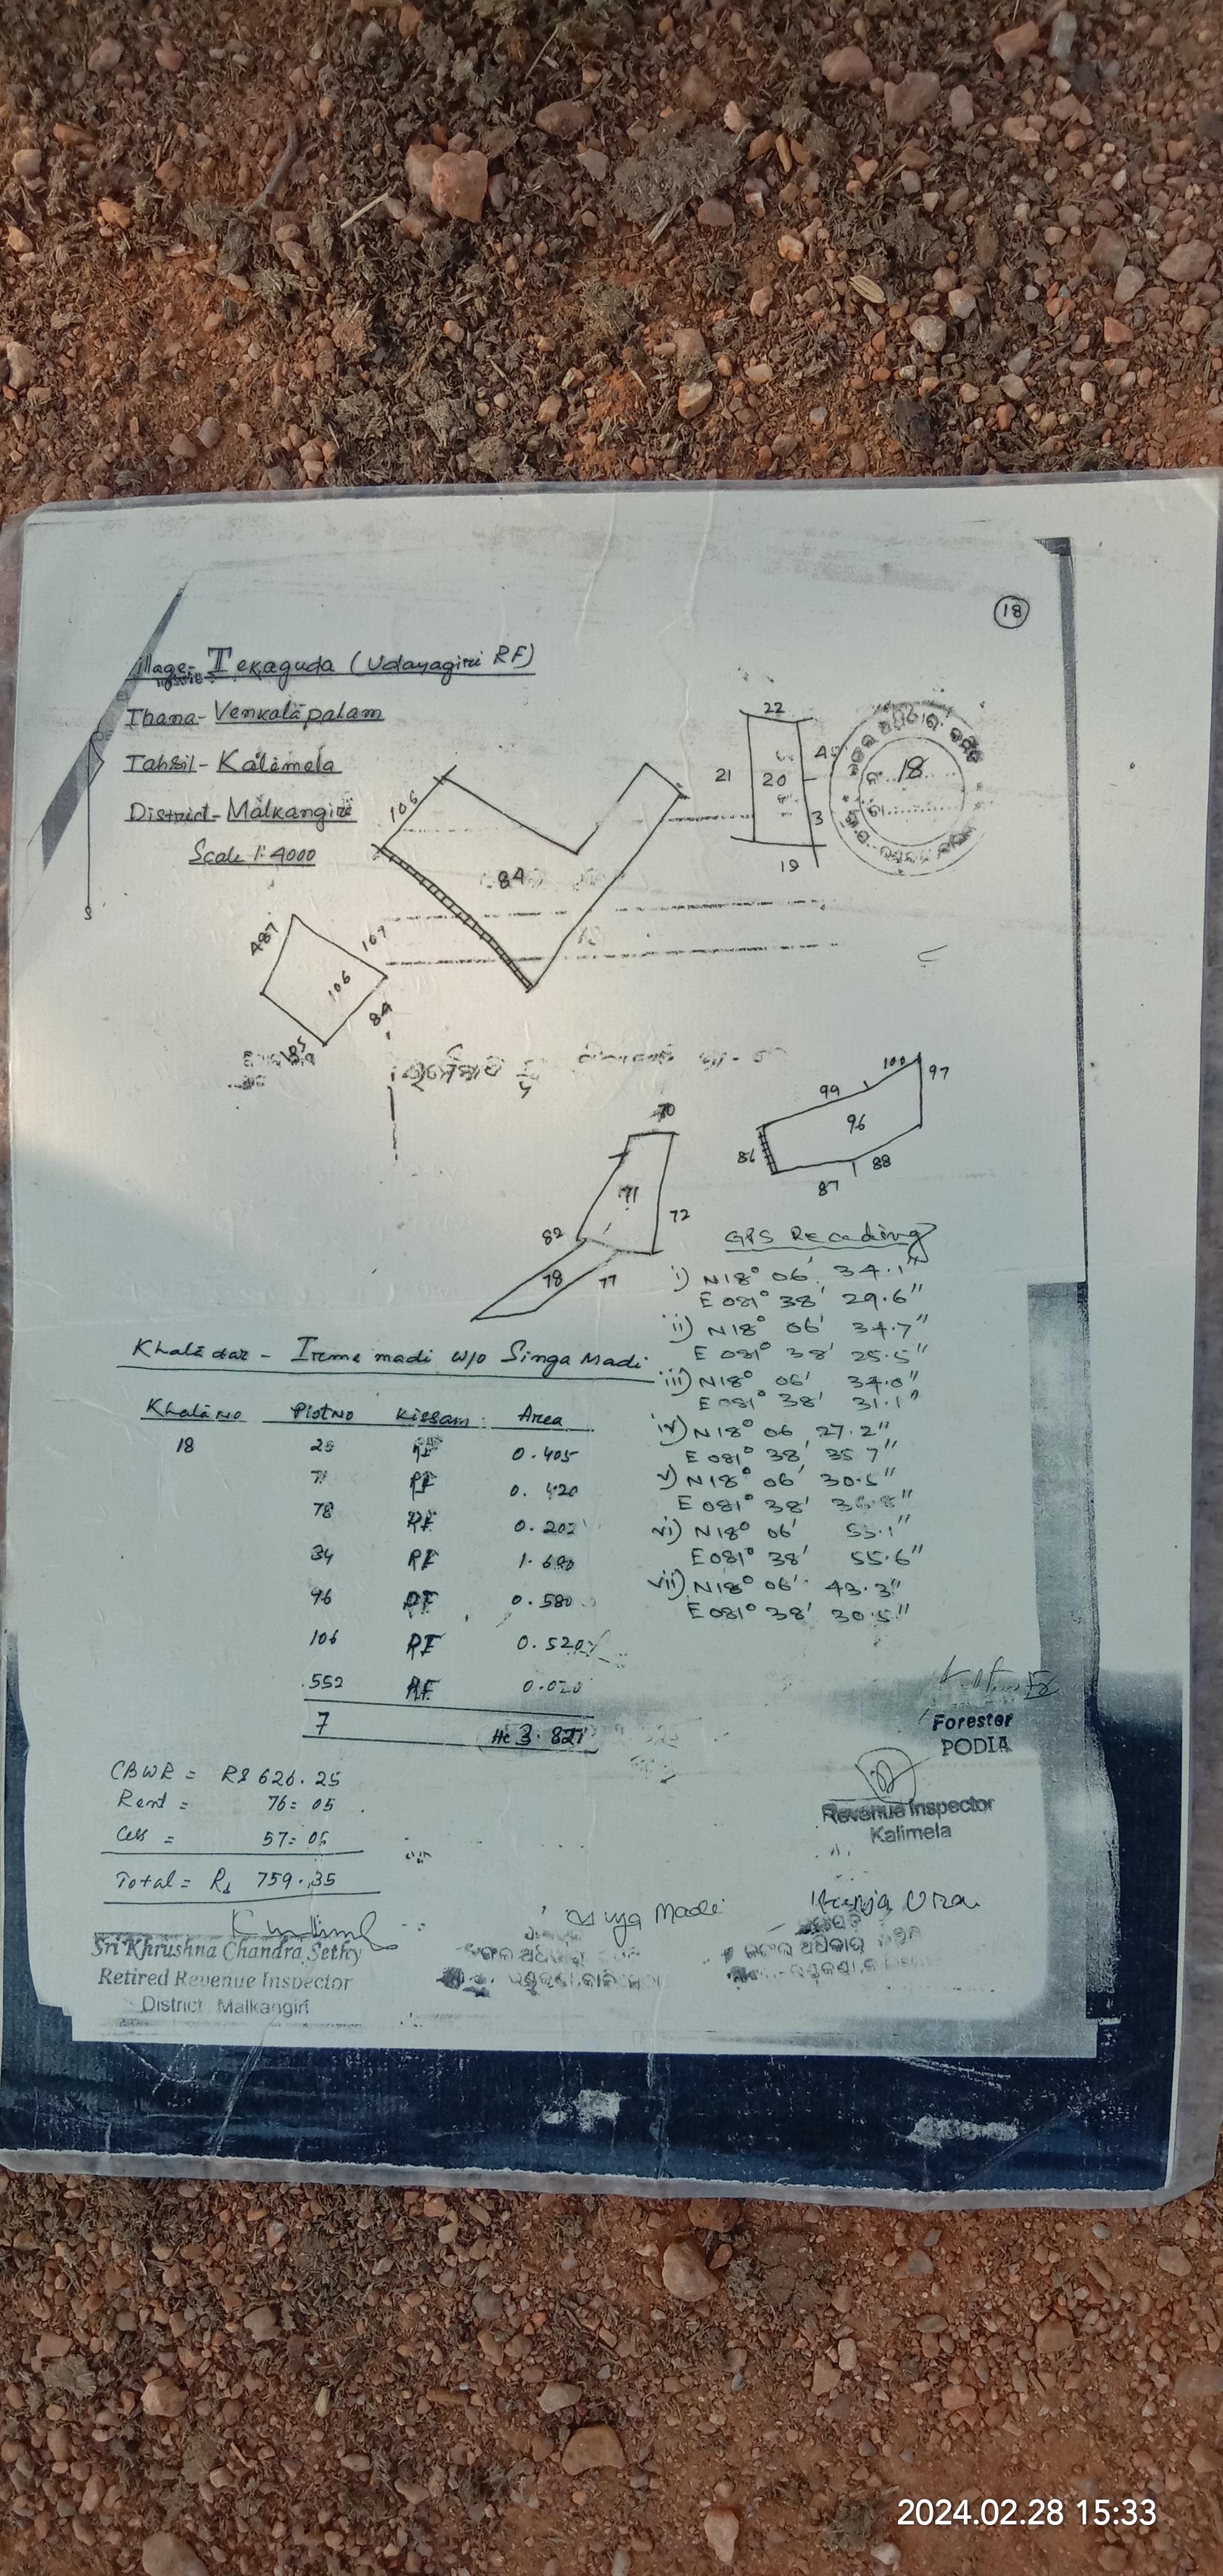 18
illage:- Tekaguda (Udayagiri RF)
Thana- Venkatapalam
Tahsil- Kalimela
District- Malkangiri
Scale 1:4000
106
84
22
21
20
4
3
19
18
487
107
106
84
85
70
71
72
82
78
77
100
99
97
96
86
88
87
GPS Reading
i) N18° 06' 34.1"
E 081° 38' 29.6"
ii) N18° 06' 34.7"
E 081° 38' 25.5"
iii) N18° 06' 34.0"
E 081° 38' 31.1"
iv) N18° 06 27.2"
E 081° 38' 35 7"
v) N18° 06' 30.5"
E 081° 38'
vi) N18° 06' 53.1"
E081° 38' 55.6"
vii) N18° 06' 43.3"
E081° 38' 30.5"
Khatadar - Irme madi W/o Singa Madi
Khata No Plot No Kissam Area
18 RF 0.405
71 RF 0.420
78 RF 0.202
RF
96 RF 0.580
106 RF 0.520
552 RF 0.020
7 Hc 3.827
CBWR = RS 626.25
Rent = 76=05
Cess = 57=05
Total = Rs 759.35
Forester
PODIA
Revenue Inspector
Kalimela
Madi
Sri Khrushna Chandra Sethy
Retired Revenue Inspector
District Malkangiri
ଜଙ୍ଗଲ ଅଧିକାର
2024.02.28 15:33